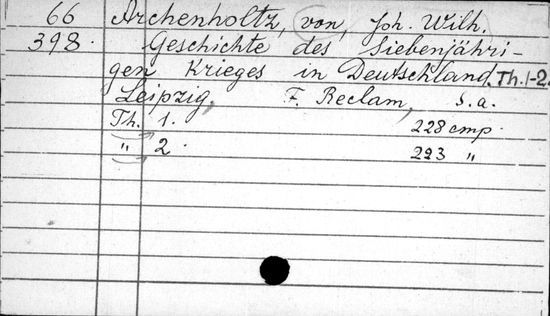 66 Archenholtz, von, Joh. Wilh.
398. Geschichte des Siebenjähri-
gen Krieges in Deutschland. Th. 1-2.
Leipzig, F. Reclam, s.a.
Th. 1. 228 cmp.
" 2. 223 "